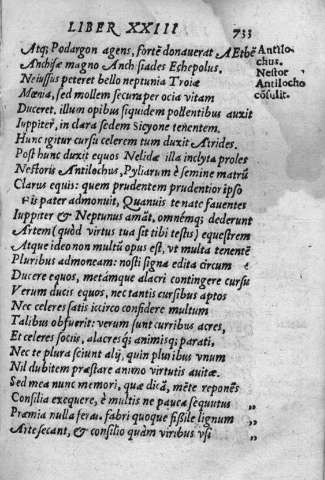 LIBER XXIII 733
Atq; Podargon agens, fortè donauerat A Ethē
Anchisæ magno Anchisiades Echepolus,
Ne iussus peteret bello neptunia Troiæ
Mœnia, sed mollem secura per ocia vitam
Duceret. illum opibus siquidem pollentibus auxit
Iuppiter, in clara sedem Sicyone tenentem.
Hunc igitur cursu celerem tum duxit Atrides.
Post hunc duxit equos Nelidæ illa inclyta proles
Nestoris Antilochus, Pyliarum è semine matrū
Clarus equis: quem prudentem prudentior ipso
Sis pater admonuit, Quanuis te nate fauentes
Iuppiter & Neptunus amāt, omnémq; dederunt
Artem (quòd virtus tua sit tibi testis) equestrem
Atque ideo non multū opus est, vt multa tenentē
Pluribus admoneam: nosti signa edita circum
Ducere equos, metámque alacri contingere cursu
Verum ducis equos, nec tantis cursibus aptos
Nec celeres satis iccirco confidere multum
Talibus obfuerit: verum sunt curribus acres,
Et celeres socij, alacresq; animisq; parati,
Nec te plura sciunt alij, quin pluribus vnum
Nil dubitem præstare animo virtutis auitæ.
Sed mea nunc memori, quæ dicā, mēte reponēs
Consilia exequere, è multis ne pauca sequutus „
Præmia nulla feras. fabri quoque fißile lignum „
Arte secant, & consilio quàm viribus vsi „
Antilo-
chus.
Nestor
Antilocho
cōsulit.